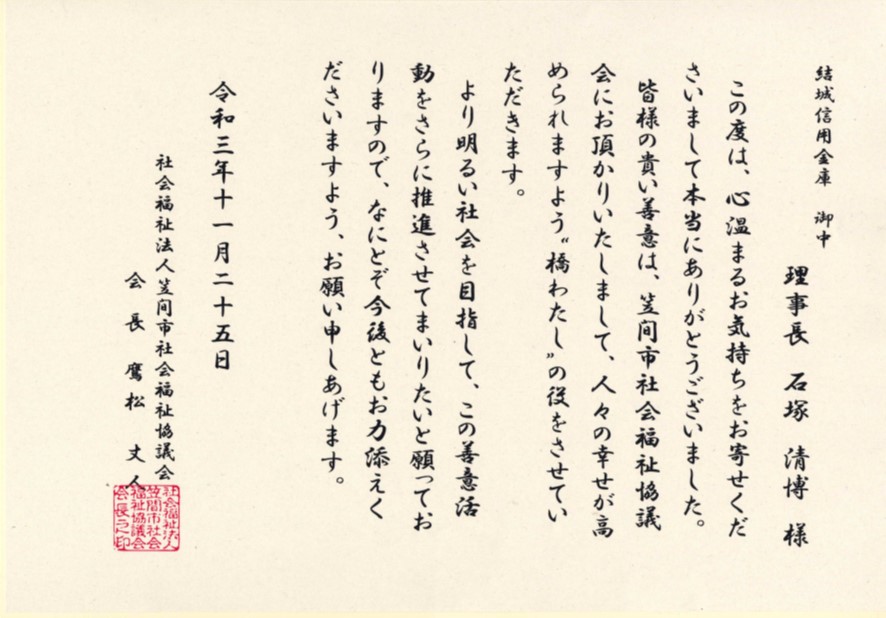 結城信用金庫　御中
理事長　石塚　清博　様
この度は、心温まるお気持ちをお寄せくだ
さいまして本当にありがとうございました。
皆様の貴い善意は、笠間市社会福祉協議
会にお頂かりいたしまして、人々の幸せが高
められますよう〝橋わたし〟の役をさせてい
ただきます。
より明るい社会を目指して、この善意活
動をさらに推進させてまいりたいと願ってお
りますので、なにとぞ今後ともお力添えく
ださいますよう、お願い申しあげます。
令和三年十一月二十五日
社会福祉法人笠間市社会福祉協議会
会長　鷹松　丈人
社会福祉法人
笠間市社会
福祉協議会
会長之印